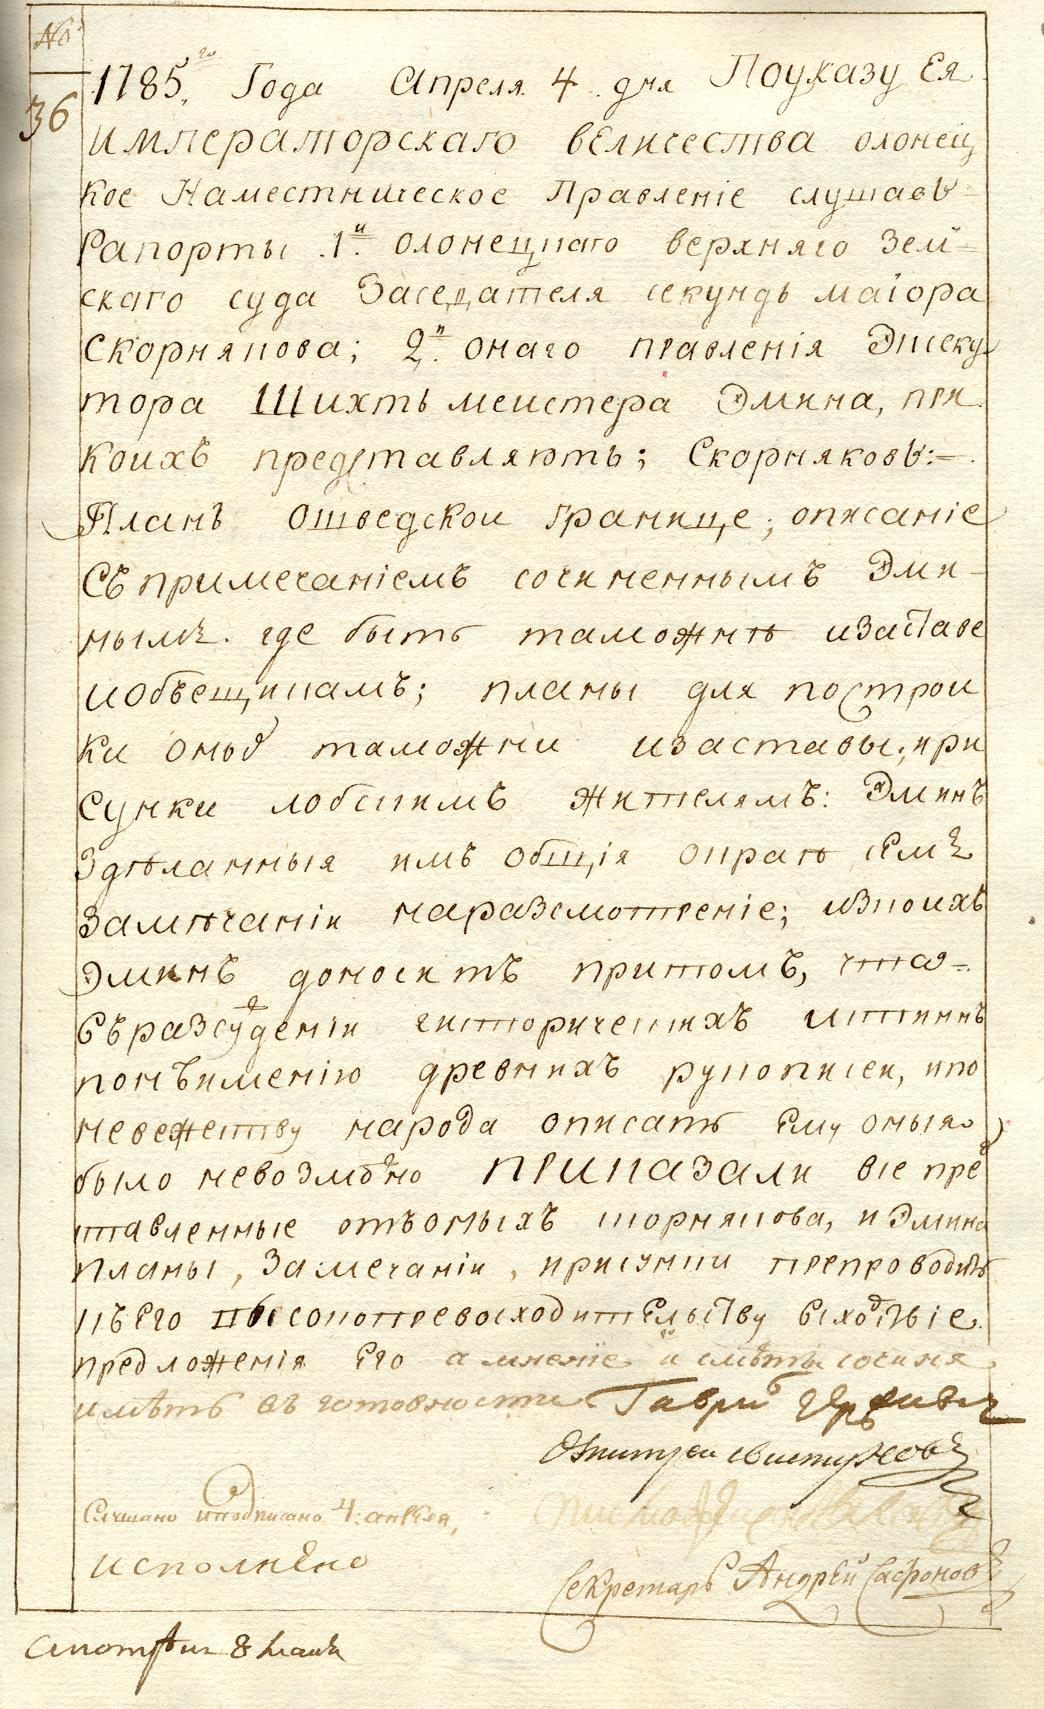 №
36
1785.го Года Апреля 4. дня Поуказу Ея
императорскаго величества олонец
кое Наместническое Правленіе слушавъ
Рапорты .1й олонецкаго верхняго Зем=
скаго суда Заседателя секундъ маіора
Скорнякова; 2й. онаго правленія Экзеку
тора Шихтъ меистера Эмина, при
коихъ представляютъ; Скорняковъ:=
Планъ ошведскои границе; описаніе
Съ примечаніемъ сочиненнымъ Эми-
нымъ. где быть таможнѣ изаставе
иобъещикамъ; планы для построи
ки оной таможни изаставы; ири
сунки лобскимъ жителямъ: Эминъ
Здѣланныя имъ общія окраѣ семъ
Замѣчаніи наразсмотреніе; изкоихъ
Эминъ доноситъ притомъ, что=
Съ разсужденіи гисторическихъ истиннъ
понъименію древнихъ рукописеи, ипо
невежеству народа описать ему оныя
было невозможно Приказали все пред
ставленные отъоныхъ скорнякова, и Эмина
планы, Замечаніи, ирисунки препроводить
къ Его высокопревосходительству въсходствіе
предложенія Его а мненіе и смѣты сочиня
имѣть въ готовности Гаври: Державин
секретарь Андрей Сафонов
исполнено